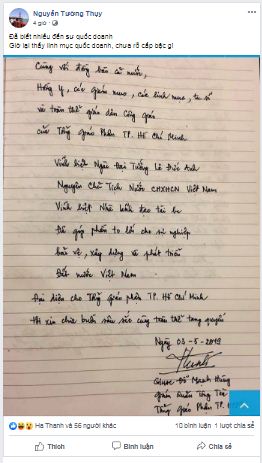 Nguyễn Tường Thụy
4 giờ
Đã biết nhiều đến sư quốc doanh
Giờ lại thấy linh mục quốc doanh, chưa rõ cấp bậc gì
Cùng với đồng bào cả nước,
Hồng Y, các giám mục, các linh mục, tu sĩ
và toàn thể giáo dân Công giáo
của Tổng Giáo Phận TP. Hồ Chí Minh
Vĩnh biệt Ngài Đại Tướng Lê Đức Anh
Nguyên Chủ Tịch Nước CHXHCN Việt Nam
Vĩnh biệt Nhà lãnh đạo tài ba
Đã góp phần to lớn cho sự nghiệp
bảo vệ, xây dựng và phát triển
Đất nước Việt Nam
Đại diện cho Tổng giáo phận TP. Hồ Chí Minh
Tôi xin chia buồn sâu sắc cùng toàn thể tang quyến
Ngày 03-5-2019
Đỗ Mạnh Hùng
Giám Quản Tông Tòa
Tổng Giáo Phận TP.
Ha Thanh và 56 người khác
10 bình luận 1 lượt chia sẻ
Thích Bình luận Chia sẻ